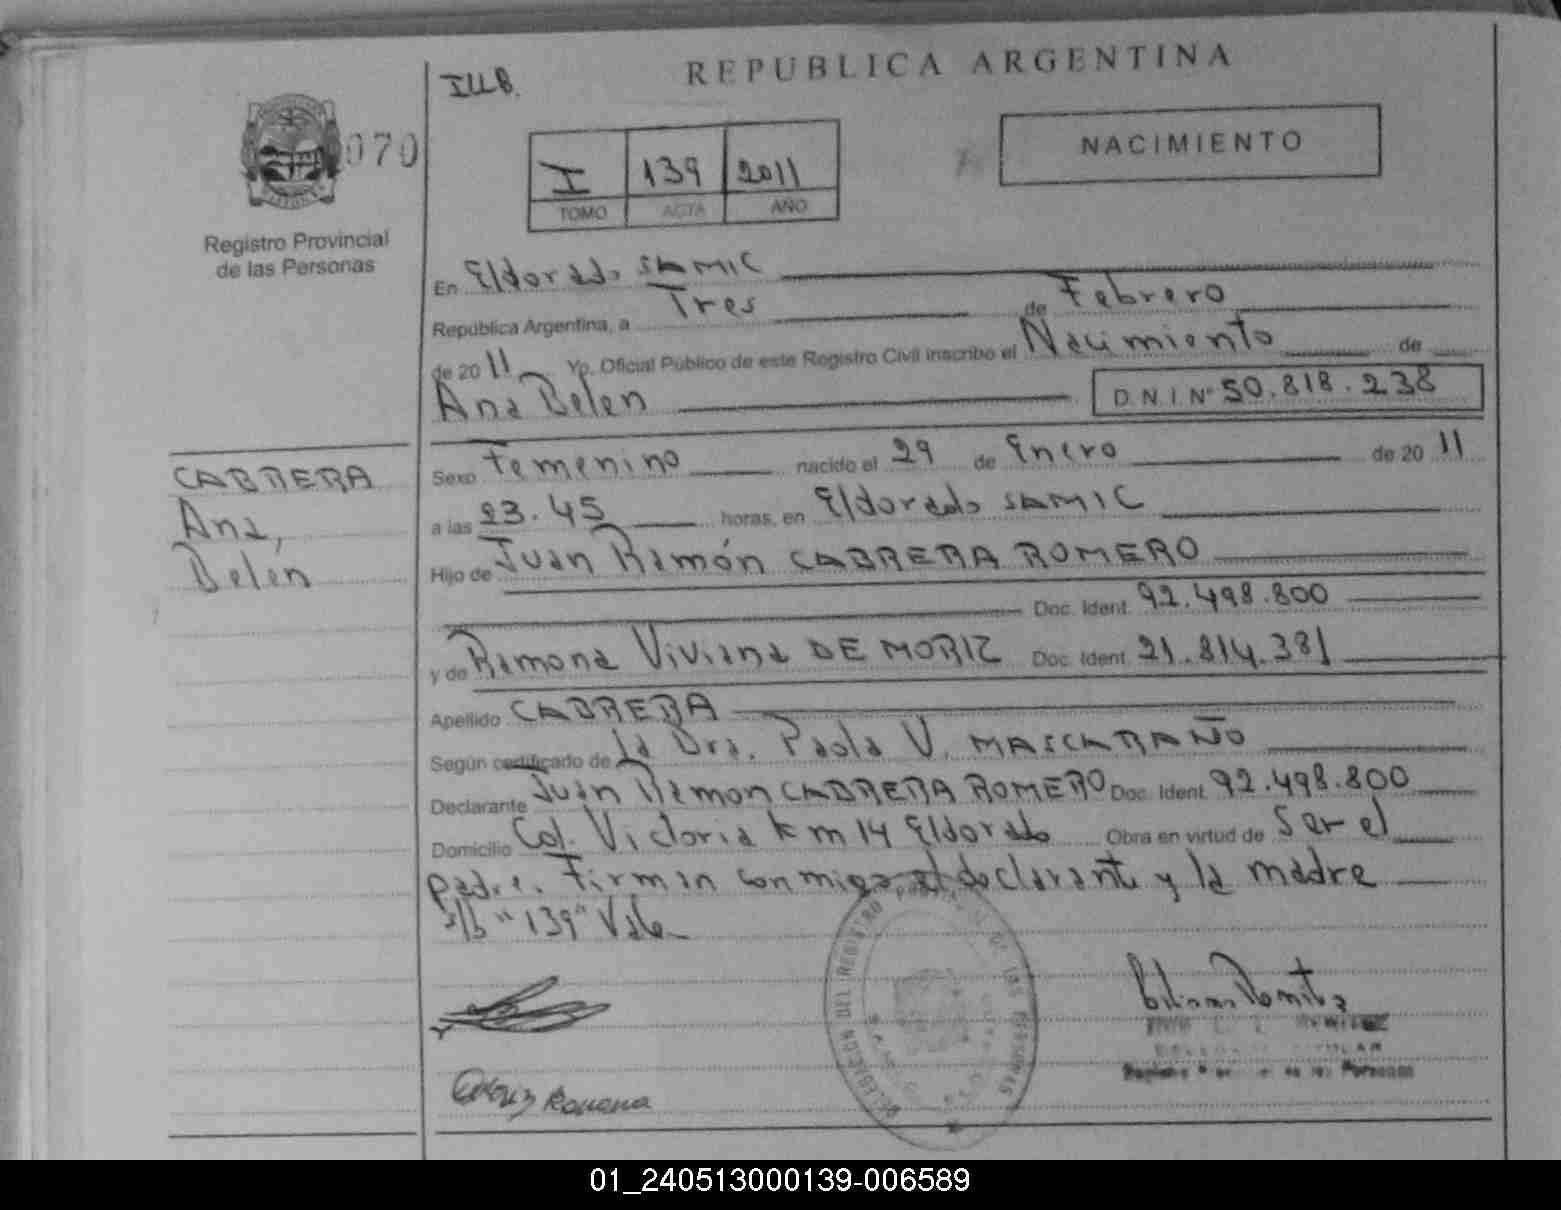 REPUBLICA ARGENTINA
070
NACIMIENTO
I 139 2011
TOMO ACTA AÑO
Registro Provincial
de las Personas
En Eldorado SAMIC
República Argentina, a Tres de Febrero
de 2011 Yo, Oficial Público de este Registro Civil inscribo el Nacimiento de
Ana Belen D.N.I Nº 50.818.238
CABRERA
Ana,
Belen
Sexo Femenino nacido el 29 de Enero de 2011
a las 23.45 horas, en Eldorado SAMIC
Hijo de Juan Ramón CABRERA ROMERO
Doc. Ident. 92.498.800
y de Ramona Viviana DE MORIZ Doc. Ident. 21.814.381
Apellido CABRERA
Según certificado de la Dra. Paola V. MASCARAÑO
Declarante Juan Ramon CABRERA ROMERO Doc. Ident. 92.498.800
Domicilio Col. Victoria km 14 Eldorado Obra en virtud de Ser el
padre. Firman conmigo, el declarante y la madre
s/b "139" Vale
DELEGACION DEL REGISTRO PROVINCIAL DE LAS PERSONAS
Personas
01_240513000139-006589